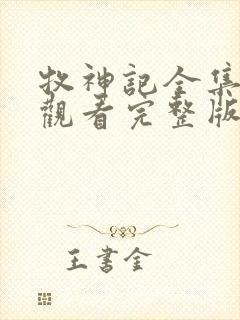 牧神記全集
觀看完整版
王書金